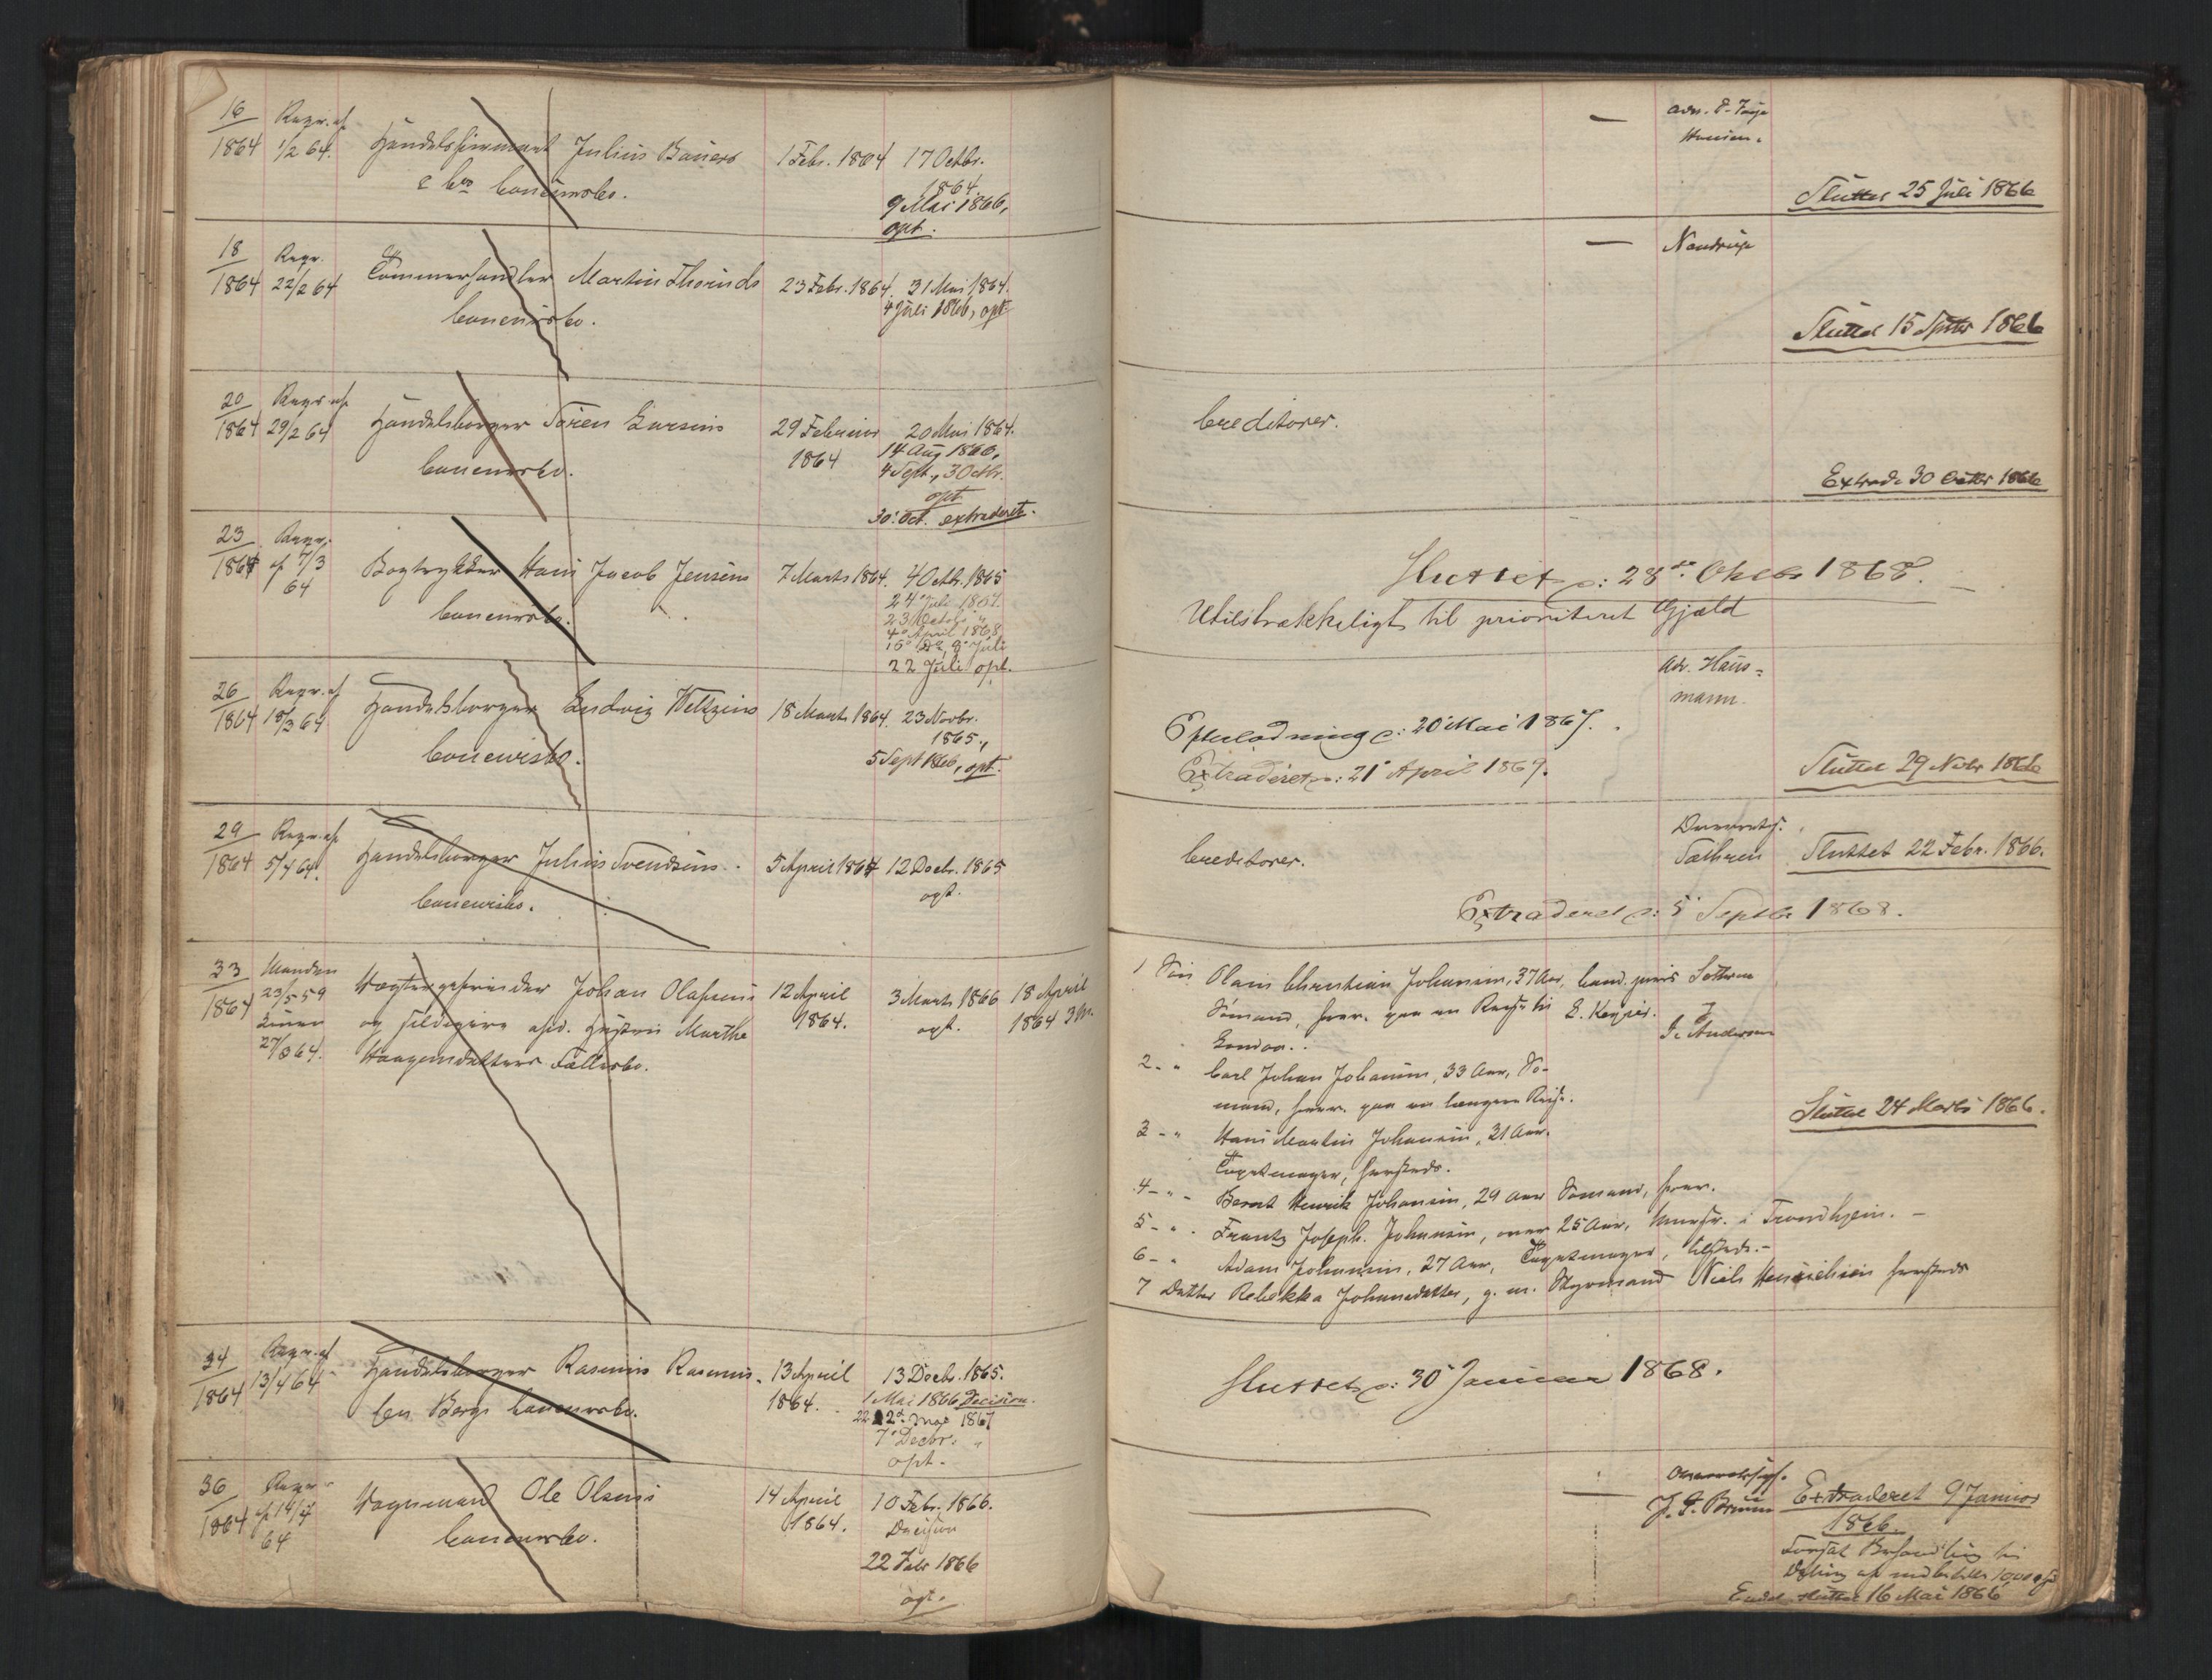 16
1864
Reqv. af
1/2 64.
Handelsfirmaet Julius Bauers
& Co. Concursbo.
1 Febr. 1864
17 Octbr.
1864
9 Mai 1866,
opt.
18
1864
Reqv.
22/2 64
Tømmerhandler Martin
Concursbo.
23 Febr. 1864.
31 Mai 1864.
4 Juli 1866, opt
20
1864
Reqv. af
29/2 64
Handelsborger Sören Larsens
Concursbo.
29 Februar
1864
20 Mai 1864.
14 Aug 1866,
4 Sept., 30 Octbr.
opt
30' Oct. extraderet.
23
1864
Reqv.
af 7/3
64
Bogtrykker Hans Jacob Jensens
Concursbo.
7 Marts 1864.
4 Octb. 1865
24' Juli 1867.
23 Octob "
4' April 1868
16' do, 9' Juli
22 Juli opt.
26
1864
Reqv. af
18/3 64
Handelsborger Ludvig Weltzins
Concursbo.
18 Marts 1864.
23 Novbr.
1865.,
5 Sept 1866, opt.
29
1864
Reqv. af
5/4 64.
Handelsborger Julius Svendsens
Concursbo.
5 April 1864
12 Decbr. 1865
opt.
33
1864
Manden
23/5 59
27/3 64.
Johan Olafsens
og Hustru Marthe
Haagensdatters Fællesbo.
12 April
1864.
3 Marts 1866
opt.
18 April
1864 3 M.
34
1864
Reqv. af
13/4 64
Handelsborger Rasmus Rasmus-
sen Bergs Concursbo.
13 April
1864.
13 Decbr. 1865.
1 Mai 1866 Decision.
22 1867
7' Decbr. "
opt.
36
1864
Reqv.
af 14/4
64
Vognmand Ole Olsens
Concursbo.
14 April
1864.
10 Febr. 1866.
Decision
22 Febr 1866
opt.
Sluttet 25 Juli 1866
Nandrup
Sluttet 15 Septbr 1866
Creditorer.
Extrad. 30 Octbr 1866
Sluttet p: 28de Oktbr 1868.
Utilstrækkeligt til prioriteret Gjæld
Adv. Haus-
mann.
Efterladning p: 20' Mai 1867.
Extraderet p: 21' April 1869.
Sluttet 29 Novbr 1866
Creditorer.
Sluttet 22 Febr. 1866.
Extraderet p: 5' Septbr 1868.
1 Søn Olaus Christian Johansen, 37 Aar,
Sömand, paa en Reise til
London.
E. Keyser.
G. Anderson
2 - " Carl Johan Johansen, 33 Aar, Sö-
mand, paa en længere Reise.
3 - " Hans Martin Johansen, 31 Aar.
Tapetmager, hersteds.
Sluttet 24 Marts 1866.
4 - " - Bernt Henrik Johansen, 29 Aar Sömand,
5 - " . Frantz Joseph Johansen, over 25 Aar, i Trondhjem. -
6 - " Adam Johansen, 27 Aar, Tapetmager,
7 Datter Rebekka Johansdatter, g. m. Styrmand Niels Henrichsen hersteds
Sluttet p: 30' Januar 1868.
J. G. Bruun
Extraderet 9 Januar
1866.
Behandling
Endel. sluttet 16 Mai 1866